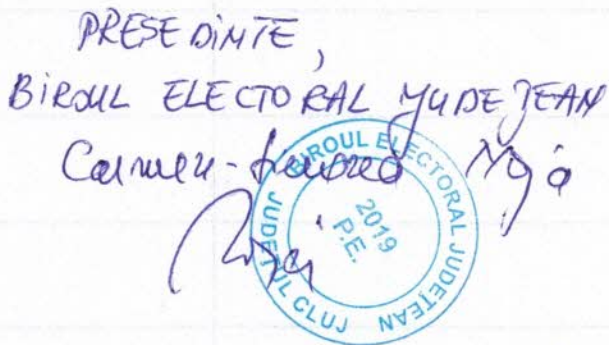 PRESEDINTE,
BIROUL ELECTORAL JUDEȚEAN
Carmen-
BIROUL ELECTORAL JUDEȚEAN
JUDEȚUL CLUJ
2019
P.E.